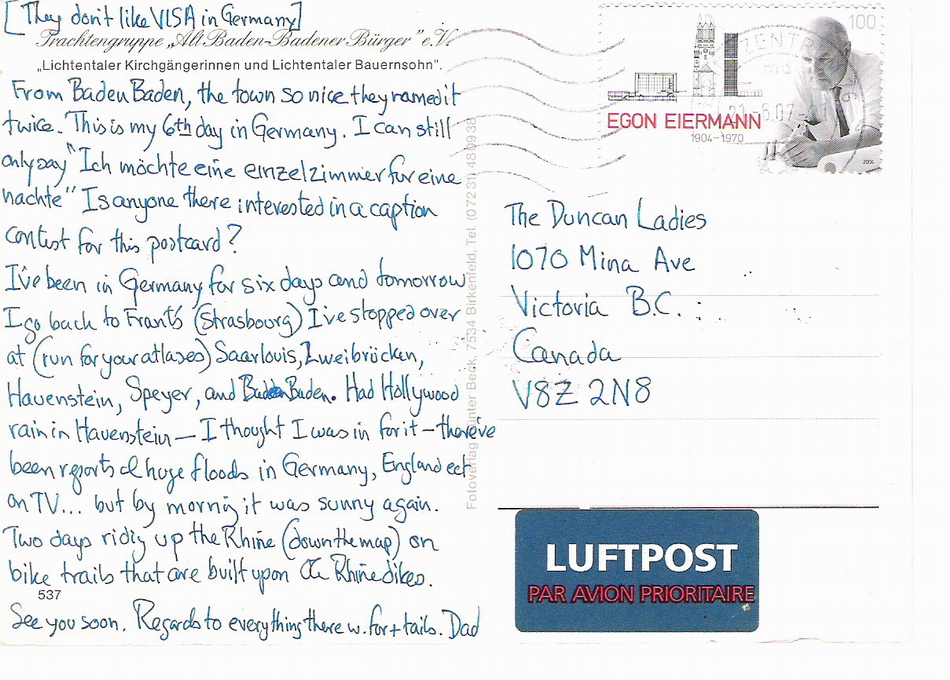 [They don't like VISA in Germany]
Trachtengruppe „Alt Baden-Badener Bürger" e.V.
„Lichtentaler Kirchgängerinnen und Lichtentaler Bauernsohn".
From Baden Baden, the town so nice they named it
twice. This is my 6th day in Germany. I can still
only say "Ich möchte eine einzelzimmer fur eine
nachte" Is anyone there interested in a caption
contest for this postcard?
I've been in Germany for six days and tomorrow
I go back to (Strasbourg) I've stopped over
at (run for your atlases) Saarlouis, Zweibrücken,
Hauenstein, Speyer, and Baden Baden. Had Hollywood
rain in Hauenstein – I thought I was in for it – there've
been reports of huge floods in Germany, England ect
on TV... but by morning it was sunny again.
Two days riding up the Rhine (down the map) on
bike trails that are built upon the Rhine dikes.
537
See you soon. Regards to everything there w. fur + tails. Dad
Fotoverlag Günter Beck, 7534 Birkenfeld, Tel. (07231) 480938
100
EGON EIERMANN
1904–1970
2004
The Duncan Ladies
1070 Mina Ave
Victoria B.C.
Canada
V8Z 2N8
LUFTPOST
PAR AVION PRIORITAIRE